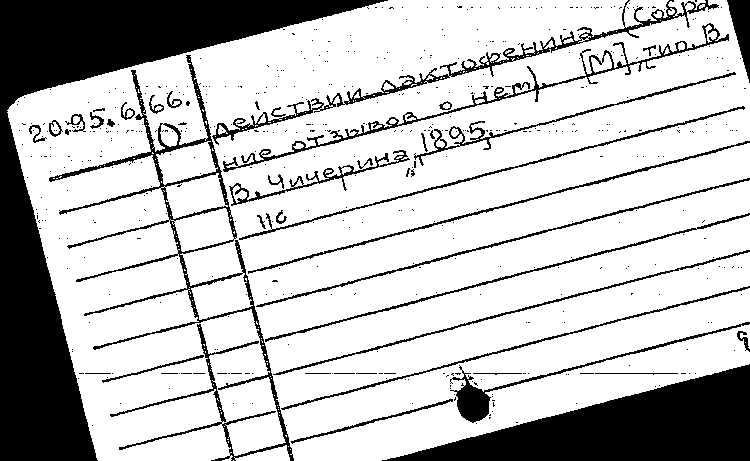 20.95.6.66.
О действии лактофенина. (Собра
ние отзывов о нем). [М.], тип. В.
В. Чичерина, 1895.